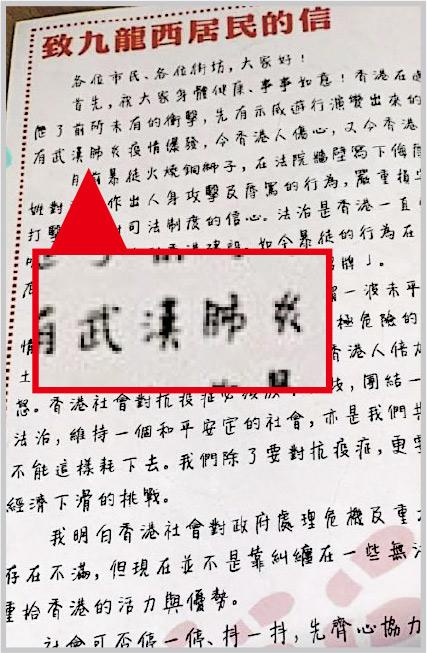 致九龍西居民的信
各位市民、各位街坊，大家好！
首先，祝大家身體健康、事事如意！香港在
歷了前所未有的衝擊，先有示威遊行演變出來的
有武漢肺炎疫情爆發，令香港人傷心，又令香港
月前暴徒火燒銅獅子，在法院牆壁寫下侮辱
她對 作出人身攻擊及辱罵的行為，嚴重損
打擊 對司法制度的信心。法治是香港一直
如今暴徒的行為在
牌」。
有武漢肺炎
一波未平
情 極危險的
香港人倍
怒。香港社會對抗疫症必須 ，團結一
法治，維持一個和平安定的社會，亦是我們共
不能這樣耗下去。我們除了要對抗疫症，更要
經濟下滑的挑戰。
我明白香港社會對政府處理危機及重大
存在不滿，但現在並不是靠糾纏在一些無
重拾香港的活力與優勢。
社會可否停一停、抖一抖，先齊心協力